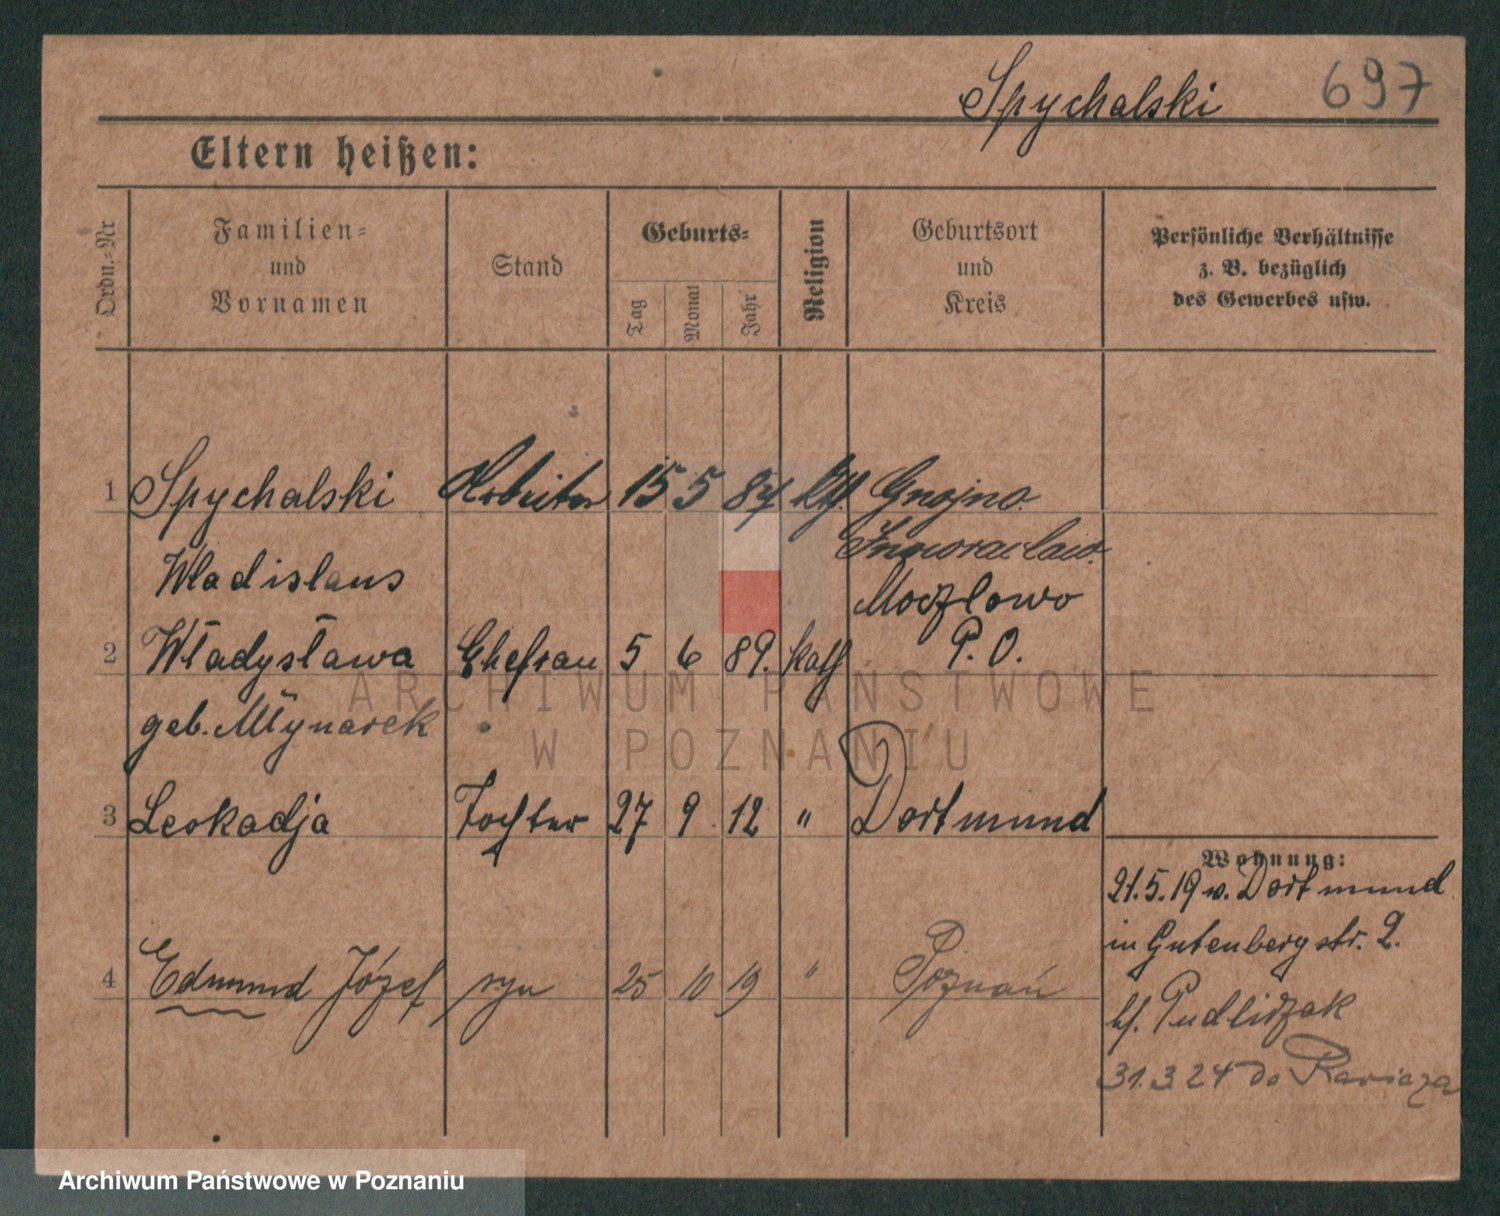 Spychalski 697
Eltern heißen:
Ordn.-Nr
Familien-
und
Vornamen
Stand
Geburts-
Tag
Monat
Jahr
Religion
Geburtsort
und
Kreis
Persönliche Verhältnisse
z. B. bezüglich
des Gewerbes usw.
1 Spychalski Arbeiter 15 5 87 Gnojno
Wladislaus Inowraclaw.
2 Władysława Ehefrau 5 6 89. kath P. O.
geb. Młynarek
3 Leokadja Tochter 27 9 12 " Dortmund
Wohnung:
21.5.19 v. Dortmund
in Gutenbergstr. 2.
4 Edmund Józef syn 25 10 19 " Poznań
bf. Pudliszak
31.3.24 do Rawicza
ARCHIWUM PAŃSTWOWE
W POZNANIU
Archiwum Państwowe w Poznaniu